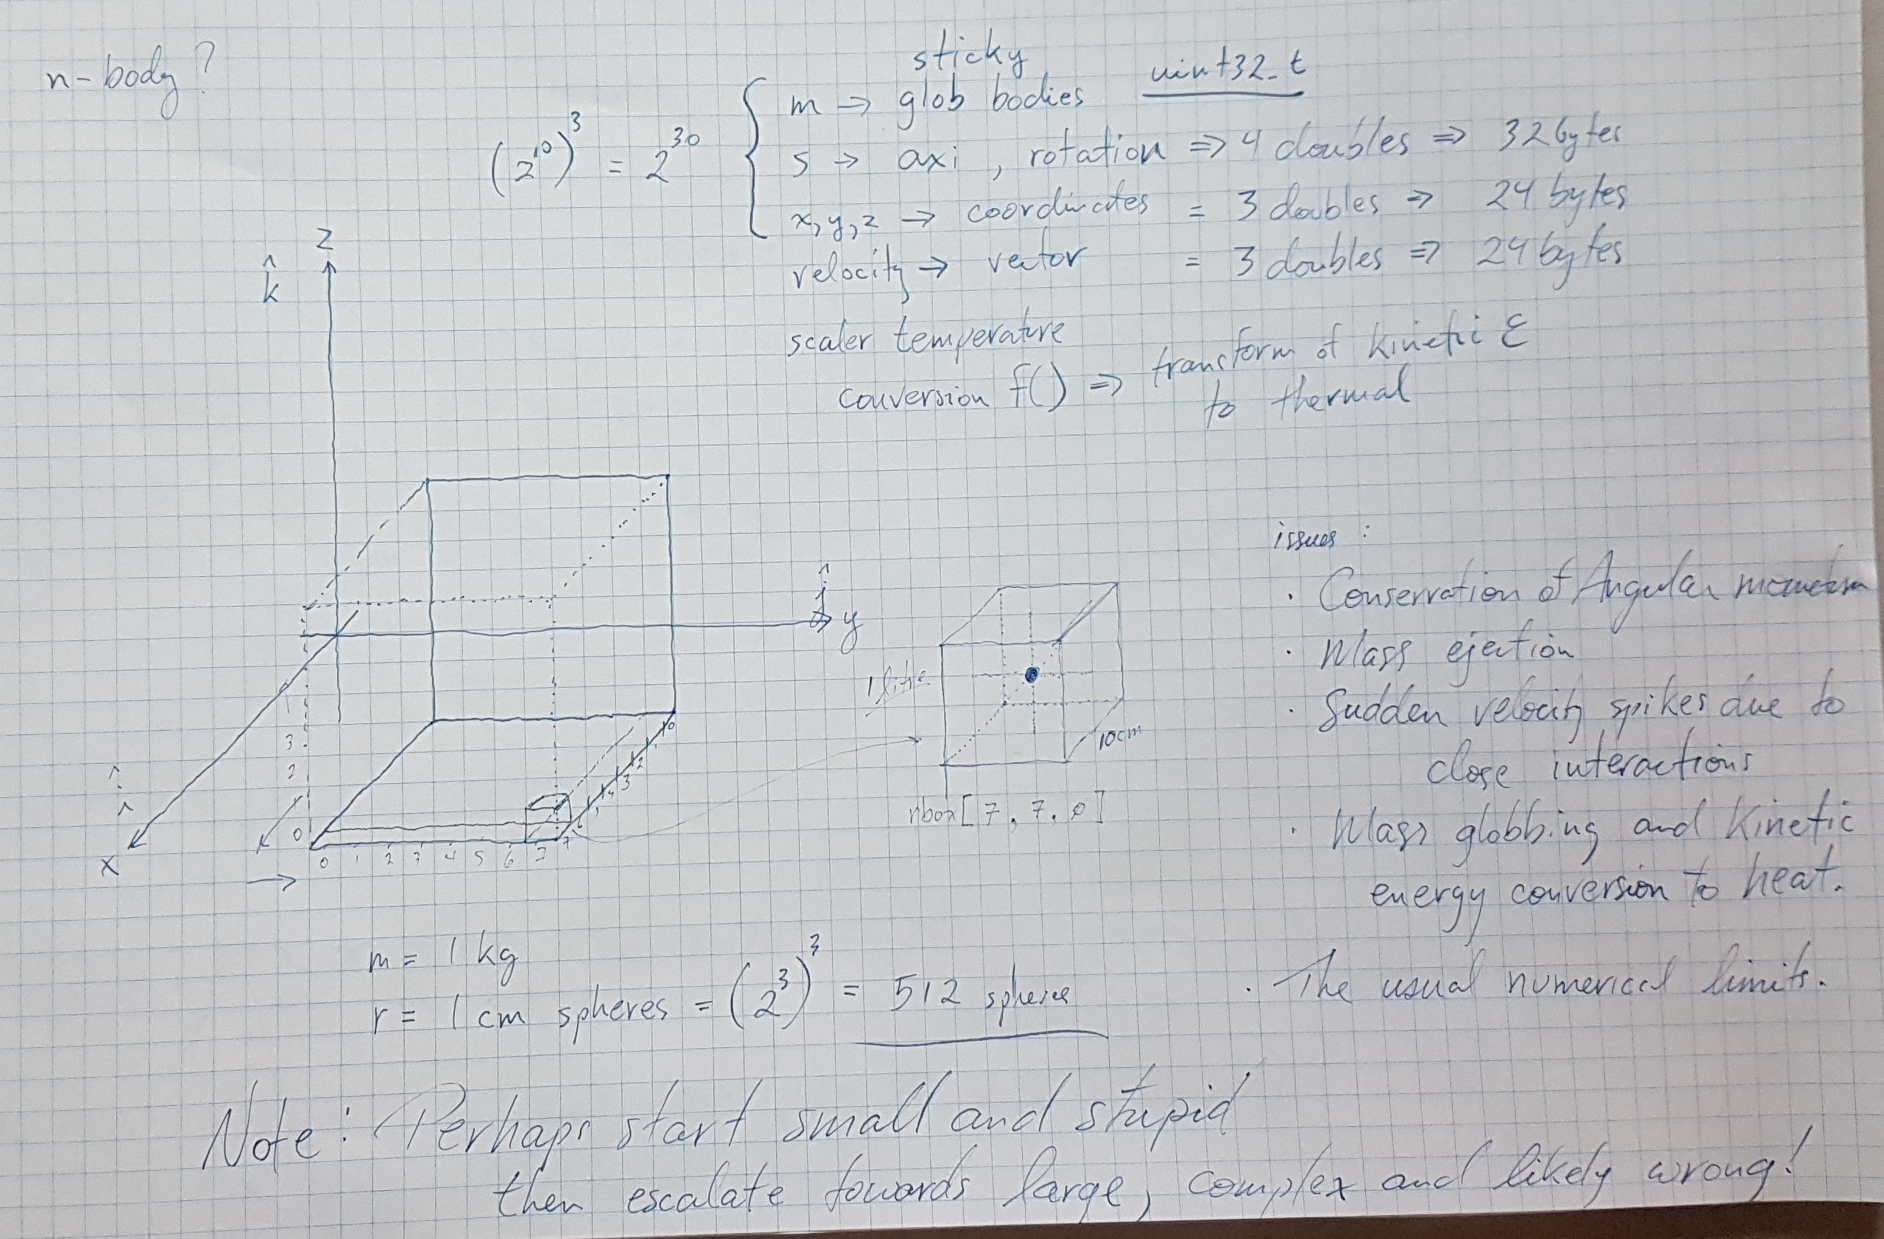 n-body?
sticky
uint32_t
m → glob bodies
(2^10)^3 = 2^30
s → axi, rotation ⇒ 4 doubles ⇒ 32 bytes
x,y,z → coordinates = 3 doubles ⇒ 24 bytes
velocity → vector = 3 doubles ⇒ 24 bytes
scaler temperature
conversion f() ⇒ transform of kinetic E
to thermal
z
k̂
y
x
3
2
0
0 1 2 3 4 5 6 7
1 litre
10cm
nbox[7, 7, 0]
issues:
· Conservation of Angular momentum
· Mass ejection
· Sudden velocity spikes due to
close interactions
· Mass globbing and kinetic
energy conversion to heat.
· The usual numerical limits.
m = 1 kg
r = 1 cm spheres = (2^3)^3 = 512 spheres
Note: Perhaps start small and stupid
then escalate towards large, complex and likely wrong!